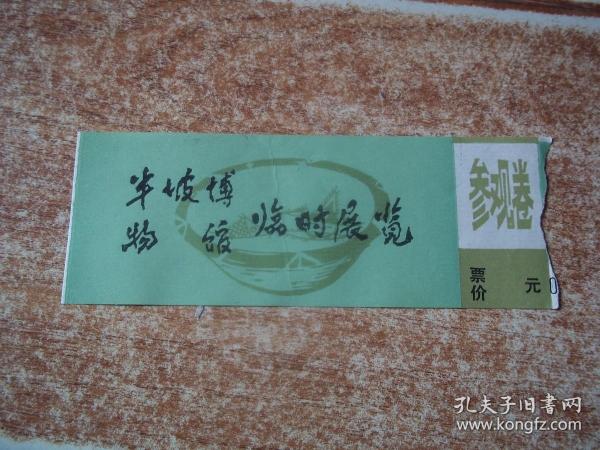 半坡博
物馆 临时展览
参观卷
票价 元
0
孔夫子旧书网
www.kongfz.com